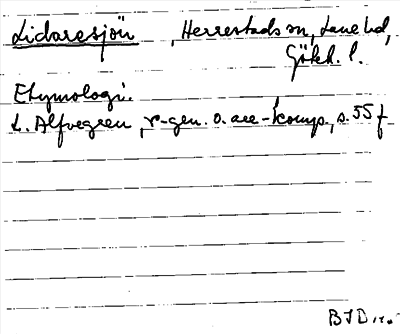 Lidaresjön, Herrestads sn, Lane hd,
Göteb. l.
Etymologi.
L. Alfvegren, r-gen. o. are-komp., s. 55 f